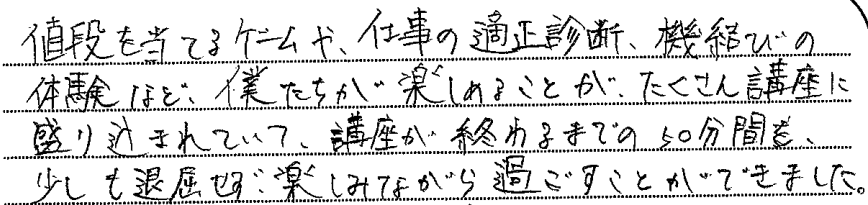 値段を当てるゲームや、仕事の適正診断、機結びの
体験など、僕たちが楽しめることが、たくさん講座に
盛り込まれていて、講座が終わるまでの50分間を、
少しも退屈せず、楽しみながら過ごすことができました。